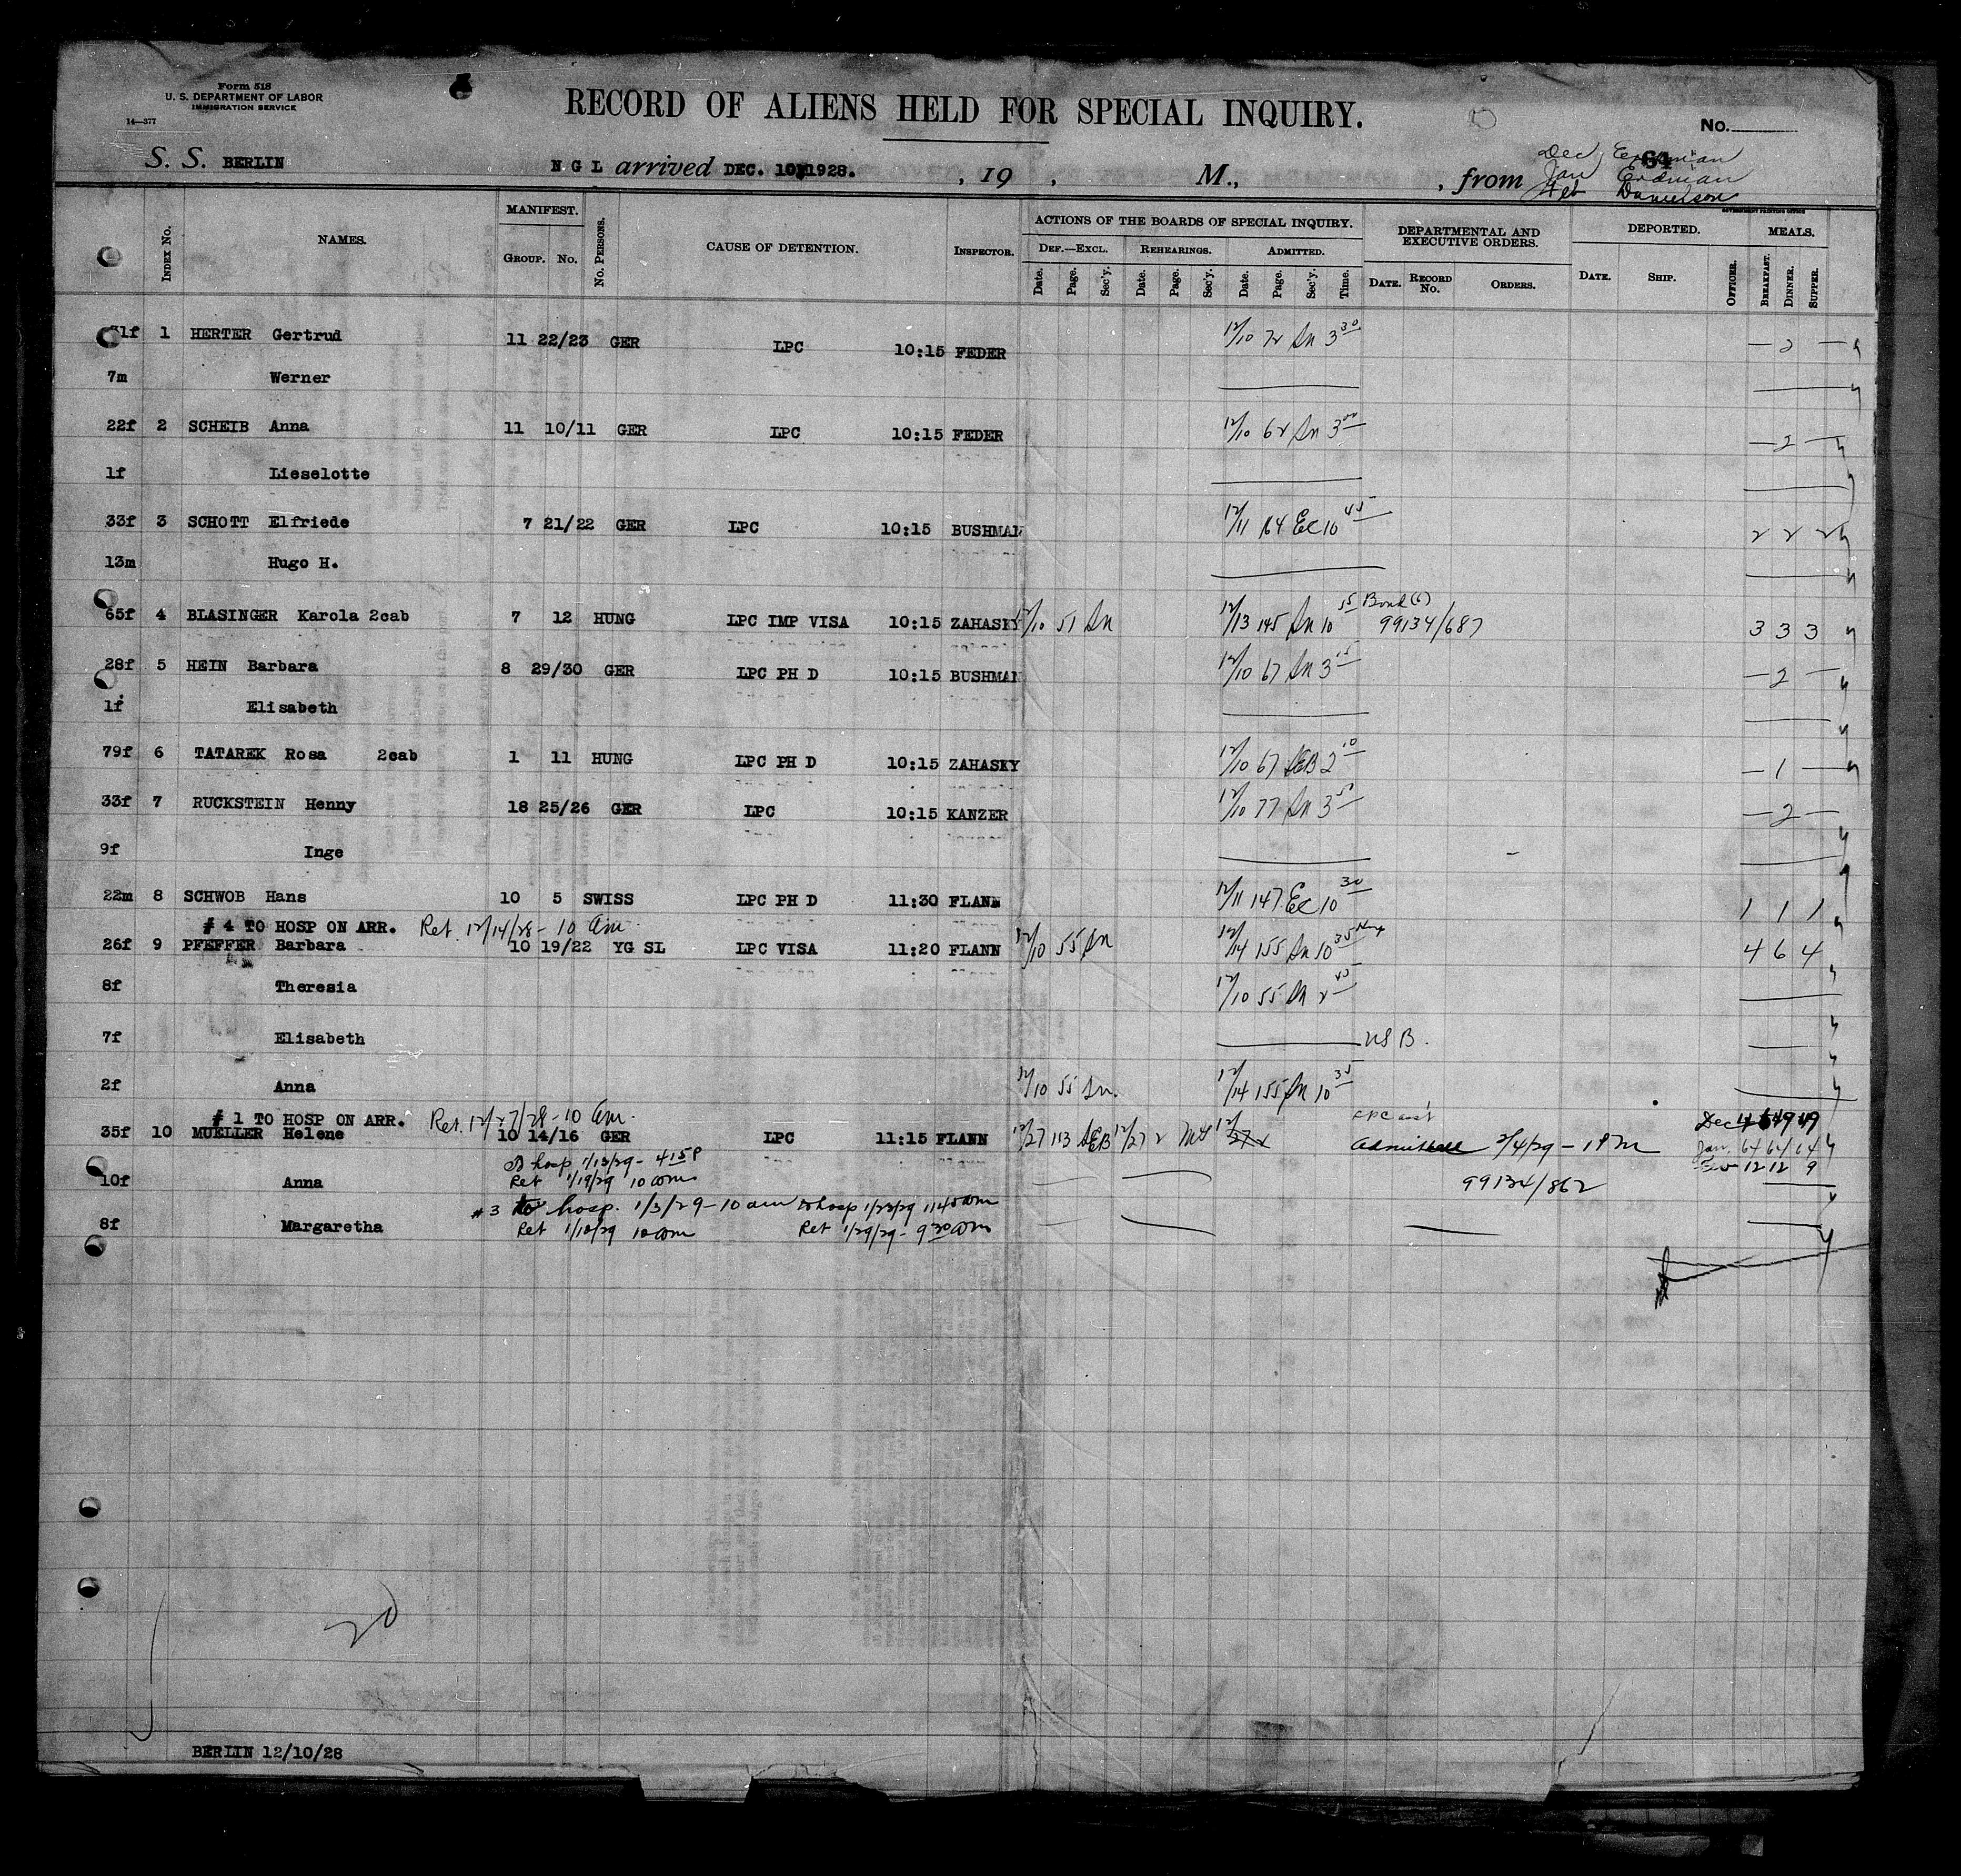 Form 518
U. S. DEPARTMENT OF LABOR
IMMIGRATION SERVICE
14—377
RECORD OF ALIENS HELD FOR SPECIAL INQUIRY.
No.
S. S. BERLIN N G L arrived DEC. 10, 1928. , 19 , M., , from 64
Dec Erdman
Jan Erdman
Feb Danielson
GOVERNMENT PRINTING OFFICE
INDEX No. NAMES. MANIFEST. GROUP. No. No. PERSONS. CAUSE OF DETENTION. INSPECTOR. ACTIONS OF THE BOARDS OF SPECIAL INQUIRY. DEPARTMENTAL AND EXECUTIVE ORDERS. DEPORTED. MEALS.
DEF.—EXCL. REHEARINGS. ADMITTED.
Date. Page. Sec'y. Date. Page. Sec'y. Date. Page. Sec'y. Time. DATE. RECORD No. ORDERS. DATE. SHIP. OFFICER. BREAKFAST. DINNER. SUPPER.
31f 1 HERTER Gertrud 11 22/23 GER LPC 10:15 FEDER 12/10 72 Sn 3 30 — 2 —
7m Werner
22f 2 SCHEIB Anna 11 10/11 GER LPC 10:15 FEDER 12/10 62 Sn 3 00 — 2 —
1f Lieselotte
33f 3 SCHOTT Elfriede 7 21/22 GER LPC 10:15 BUSHMAN 12/11 164 EC 10 45 2 2 2
13m Hugo H.
65f 4 BLASINGER Karola 2cab 7 12 HUNG LPC IMP VISA 10:15 ZAHASKY 12/10 51 Sn 12/13 145 Sn 10 55 Bond 99134/687 3 3 3
28f 5 HEIN Barbara 8 29/30 GER LPC PH D 10:15 BUSHMAN 12/10 67 Sn 3 15 — 2 —
1f Elisabeth
79f 6 TATAREK Rosa 2cab 1 11 HUNG LPC PH D 10:15 ZAHASKY 12/10 67 SEB 2 10 — 1 —
33f 7 RUCKSTEIN Henny 18 25/26 GER LPC 10:15 KANZER 12/10 77 Sn 3 50 — 2 —
9f Inge
22m 8 SCHWOB Hans 10 5 SWISS LPC PH D 11:30 FLANN 12/11 147 EC 10 30 1 1 1
# 4 TO HOSP ON ARR. Ret. 12/14/28 - 10 am
26f 9 PFEFFER Barbara 10 19/22 YG SL LPC VISA 11:20 FLANN 12/10 55 Sn 12/14 155 Sn 10 35 4 6 4
8f Theresia 12/10 55 Sn 2 45
7f Elisabeth US B.
2f Anna 12/10 55 Sn. 12/14 155 Sn 10 35
# 1 TO HOSP ON ARR. Ret. 12/27/28 - 10 am.
35f 10 MUELLER Helene 10 14/16 GER LPC 11:15 FLANN 12/27 113 SEB 12/27 2 Admitted 2/4/29 - 1 PM Dec 49 49
Jan. 64 64 64
to hosp 1/13/29 - 4 15 P
12 12 9
10f Anna Ret 1/19/29 10 am 99134/862
# 3 to hosp. 1/3/29 - 10 am to hosp 1/23/29 11 45 am
8f Margaretha Ret 1/10/29 10 am Ret 1/29/29 - 9 30 am
20
BERLIN 12/10/28